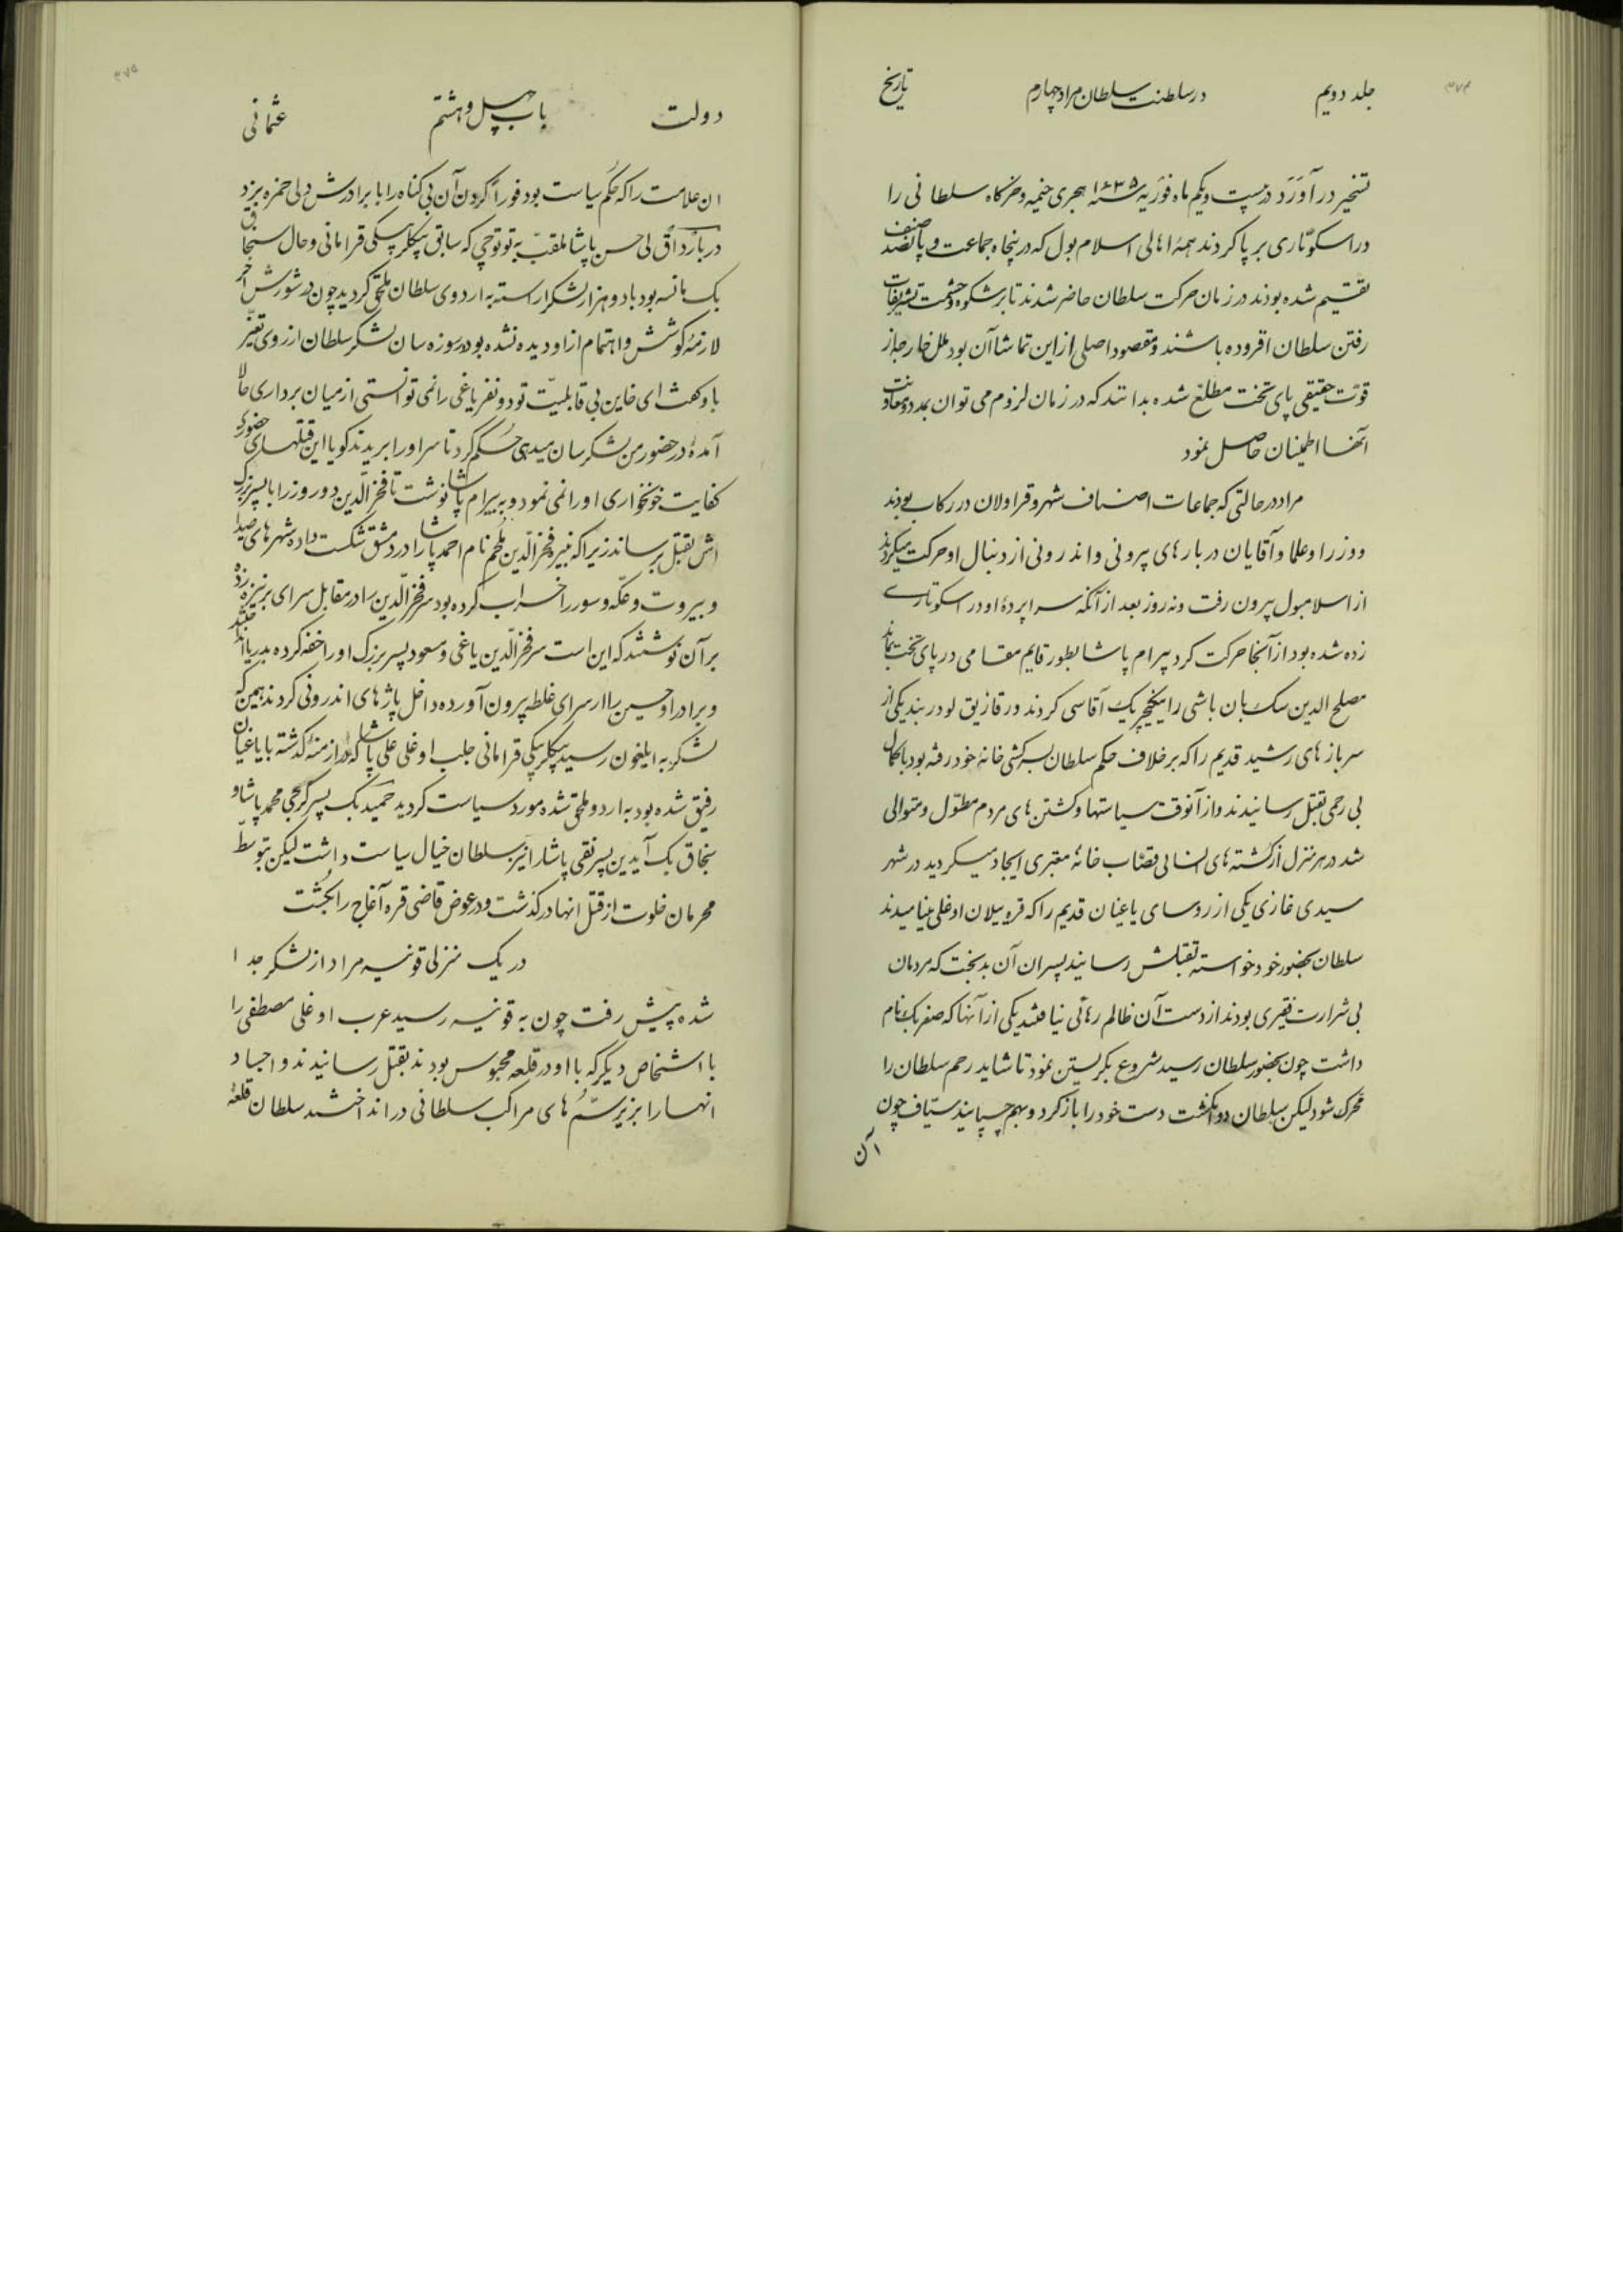 جلد دویم در سلطنت سلطان مراد چهارم تاریخ
۳۷۴
تسخیر در آورد در بیست ویکم ماه فوریه سنه ۱۶۳۵ هجری خیمه و خرگاه سلطانی را
در اسکوتاری بر پا کردند همه اهالی اسلامبول که در پنجاه جماعت و پانصد صنف
تقسیم شده بودند در زمان حرکت سلطان حاضر شدند تا بر شکوه و حشمت تشریفات
رفتن سلطان افزوده باشند و مقصود اصلی از این تماشا آن بود ملل خارجه از
قوت حقیقی پای تخت مطلع شده بدانند که در زمان لزوم می توان بمدد و معاونت
آنها اطمینان حاصل نمود
مراد در حالتی که جماعات اصناف شهر و قراولان در رکاب بودند
و وزرا و علما و آقایان دربارهای بیرونی و اندرونی از دنبال او حرکت میکردند
از اسلامبول بیرون رفت و نه روز بعد از آنکه سراپرده او در اسکوتاری
زده شده بود از آنجا حرکت کرد بیرام پاشا بطور قایم مقامی در پای تخت بماند
مصلح الدین سک بان باشی را ینکچریک آقاسی کردند و رقازیق لو در بند یکی از
سربازهای رشید قدیم را که بر خلاف حکم سلطان بسرکشی خانه خود رفته بود با کمال
بی رحمی بقتل رسانیدند و از آنوقت سیاستها و کشتن های مردم مطول و متوالی
شد در هر منزل از کشته های انسانی قصاب خانه معتبری ایجاد میگردید در شهر
سیدی غازی یکی از روسای یاغیان قدیم را که قره ییلان اوغلی مینامیدند
سلطان بحضور خود خواسته بقتلش رسانید پسران آن بدبخت که مردمان
بی شرارت فقیری بودند از دست آن ظالم رهائی نیافتند یکی از آنها که صفر بک نام
داشت چون بحضور سلطان رسید شروع بگریستن نمود تا شاید رحم سلطان را
محرک شود لیکن سلطان دو انگشت دست خود را باز کرد و بهم چسپانید سیاف چون
آن
دولت باب چهل و هشتم عثمانی
۳۷۵
ان علامت را که حکم سیاست بود فورا گردن آن بی گناه را با برادرش دلی حمزه بزد
در بازداق لی حسن پاشا ملقب به توتوجی که سابق بیکلربیکی قرامانی و حال سنجاق
بک مانسه بود با دو هزار لشکر اراسته به اردوی سلطان ملحق گردید چون در شورش اخر
لازمه کوشش و اهتمام از او دیده نشده بود در روزه سان لشکر سلطان از روی تغیر
با و گفت ای خاین بی قابلیت تو دو نفر یاغی را نمی توانستی از میان برداری حالا
آمده در حضور من لشکر سان میدهی حکم کرد تا سر او را بریدند گویا این قتلهای حضوری
کفایت خونخواری او را نمی نمود و به بیرام پاشا نوشت تا فخر الدین دوروز را با پسر بزرگ
اش بقتل برساند زیرا که نبیره فخر الدین ملحم نام احمد پاشا را در دمشق شکست داده شهرهای صیدا
و بیروت و عکه و سور را خراب کرده بود سر فخر الدین را در مقابل سرای بر نیزه زده
بر آن نوشتند که این است سر فخر الدین یاغی و مسعود پسر بزرگ او را خفه کرده بدریا انداختند
و برادر او حسین را از سرای غلطه بیرون آورده داخل پاژهای اندرونی کردند همین که
لشکر به ایلغون رسید بیکلربیکی قرامانی جلب اوغلی علی پاشا که در ازمنه گذشته با یاغیان
رفیق شده بود به اردو ملحق شده مورد سیاست گردید حمید بک پسر گرجی محمد پاشا و
سنجاق بک آیدین پسر نقی پاشا را نیز سلطان خیال سیاست داشت لیکن بتوسط
محرمان خلوت از قتل انها در گذشت و در عوض قاضی قره آغاج را بکشت
در یک منزلی قونیه مراد از لشکر جدا
شده پیش رفت چون به قونیه رسید عرب اوغلی مصطفی را
با اشخاص دیگر که با او در قلعه محبوس بودند بقتل رسانیدند و اجساد
انها را بزیر سم های مراکب سلطانی در انداختند سلطان قلعه